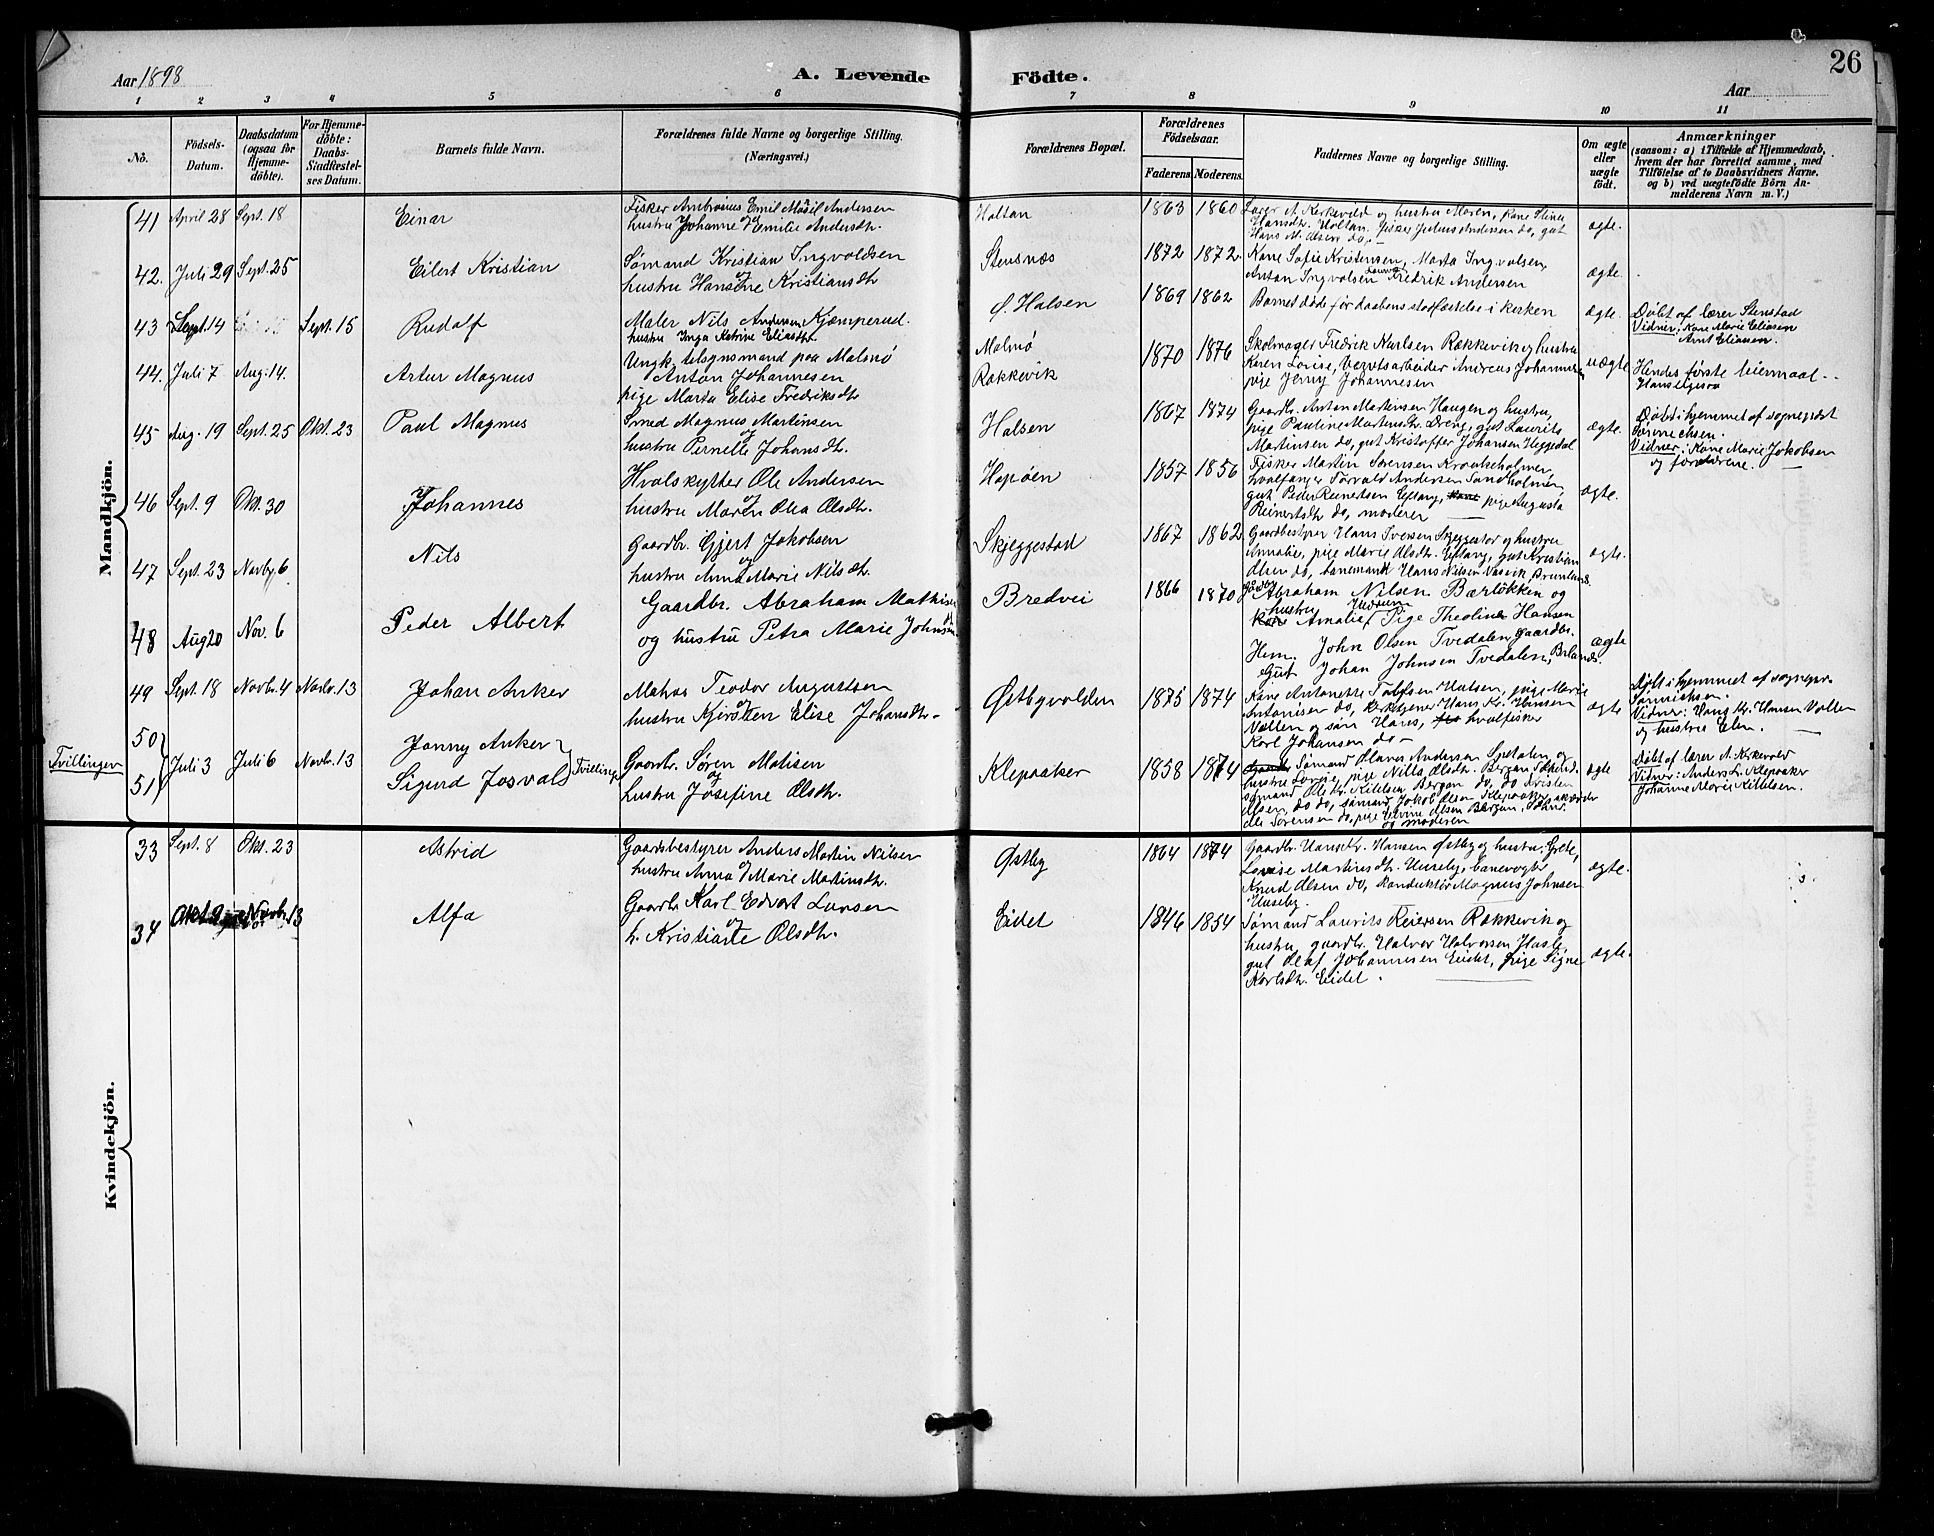 26
Aar 1898
A. Levende
Födte.
Aar
1 2 3 4 5 6 7 8 9 10 11
Nö.
Födsels-
Datum.
Daabsdatum
(ogsaa for
Hjemme-
döbte).
For Hjemme-
döbte:
Daabs-
Stadfæstel-
ses Datum.
Barnets fulde Navn.
Forældrenes fulde Navne og borgerlige Stilling.
(Næringsvei.)
Forældrenes Bopæl.
Forældrenes
Födselsaar.
Faderens Moderens.
Faddernes Navne og borgerlige Stilling.
Om ægte
eller
uægte
födt.
Anmærkninger
(saasom: a) i Tilfælde af Hjemmedaab,
hvem der har forrettet samme, med
Tilföielse af to Daabsvidners Navne.
og b) ved uægtefödte Börn An-
melderens Navn m. V.)
Mandkjön.
41 April 28 Sept. 18 Einar
Fisker Ambrosius Emil Andersen
hustru Johanne Emilie Andersdtr.
Holtan 1863 1860
Lærer A. Kirkevold og hustru Maren, kone Stina
Hansdtr. Holtan, fisker Julius Andersen do, gut
Hans M. Olsen do.
ægte.
42. Juli 29 Sept. 25 Eilert Kristian
Sømand Kristian Ingvoldsen
og
hustru Hansine Kristiansdtr
Stensnæs 1872 1872.
Kone Sofie Kristensen, Marta Ingvolsen,
Anton Ingvolsen Fredrik Andersen
ægte.
43 Sept. 14 Sept. 15 Rudolf
Maler Nils Andersen Kjæmperud.
hustru Inga Katrine Eliasdtr
Ø. Halsen 1869 1862
Barnet døde før daabens stadfæstelse i kirken
ægte.
Døbt af lærer Stenstad
Vidner: Kone Marie Eliasen
Arnt Eliasen.
44. Juli 7 Aug. 14. Artur Magnus
Ungk. telegrafmand paa Malmø
Anton Johannesen
pige Marta Elise Fredriksdtr
Malmø
Rakkevik
1870 1876
Skomager Fredrik Karlsen Rakkevik og hustru
Karen Lovise, Værftsarbeider Andreas Johannesen
pige Jenny Johannesen
uægte
Hendes første leiermaal
45 Aug. 19 Sept. 25 Okt. 23 Paul Magnus
Smed Magnus Martinsen
og
hustru Pernelle Johansdtr.
Halsen 1867 1874
Gaardbr. Anton Martinsen Haugen og hustru,
pige Pauline Martinsdtr. Dreng, gut Laurits
Martinsen do, gut Kristoffer Johansen Heggedal
ægte.
Døbt i hjemmet af sogneprest
Vidner: Kone Marie Jakobsen
og forældrene.
46 Sept. 9 Okt. 30 Johannes
Hvalskytter Ole Andersen
og
hustru Maren Olea Olsdtr.
Hapøen 1857 1856
Fisker Martin Sørensen Kraakeholmen,
hvalfanger Torvald Andersen Sandholmen,
gut Peder Reinertsen Eftang, pige Augusta
Reinertsdtr do, moderen
ægte.
47 Sept. 23 Novbr. 6 Nils
Gaardbr. Gjert Jakobsen
og
hustru Anna Marie Nilsdtr.
Skjeggestad 1867 1862
Gaardbestyrer Hans Iversen Skjeggestad og hustru
Amalie, pige Marie Olsdtr. Eftang, gut Kristian
Olsen do, banemand Hans Nilsen Vasvik, Brunlanes.
ægte.
48 Aug 20 Nov. 6 Peder Albert
Gaardbr. Abraham Mathisen
og hustru Petra Marie Johnsen
Bredvei 1866 1870
Gaardbr. Abraham Nilsen Bærløkken og
hustru Amalie, Pige Theoline Hansen
Hem. John Olsen Tvedalen gaardbr.
Gut Johan Johnsen Tvedalen, Brlanes.
ægte
49 Sept. 18 Novbr. 4 Novbr. 13 Johan Anker
Matros Teodor Augustsen
og
hustru Kjersten Elise Johansdtr.
Østbyvolden 1875 1874
Kone Antonette Tolfsen Halsen, pige Marie
Antonisen do, kirketjener Hans Kr. Hansen
Vollen og søn Hans, hvalfisker
Karl Johansen do
ægte
Døbt i hjemmet af sognepr.
Vidner: Hans Kr. Hansen Vollen
og hustru Elen.
Tvillinger
50
51
Juli 3 Juli 6 Novbr. 13
Jonny Anker
Sigurd Josval
Tvillinger
Gaardbr. Søren Matisen
og
hustru Josefine Olsdtr.
Klepaaker 1858 1874
Sømand Olaves Andersen Spetalen og
hustru Lovise, pige Nilla Olsdtr. Bergan
sømand Ole Kr. Kittelsen Bergan do, do Kristen
Olsen do do, sømand Jakob Olsen Klepaaker
Ole Sørensen do, pige Elvine Olsen Bergan,
og moderen
ægte
døbt af lærer A. Kirkevold
Vidner: Anders L. Klepaaker
Johanne Marie Kittelsen.
Kvindekjön.
33 Sept. 8 Okt. 23 Astrid
Gaardsbestyrer Anders Martin Nilsen
og
hustru Anna Marie Martinsdtr.
Østby 1864 1874
Gaardbr. Hans Kr. Hansen Østby og hustru Grete,
Lovise Martinsdtr. Huseby, banevogter
Knud Olsen do, konduktør Magnus Johnsen
Huseby.
ægte.
34 Novbr. 13 Alfa
Gaardbr. Karl Edvart Larsen
og
h. Kristiane Olsdtr.
Eidet 1846 1854
Sømand Laurits Reiersen Rakkevik og
hustru, gaardbr. Halvor Halvorsen Hasle,
gut Olaf Johannesen Eidet, pige Signe
Karlsdtr. Eidet.
ægte.